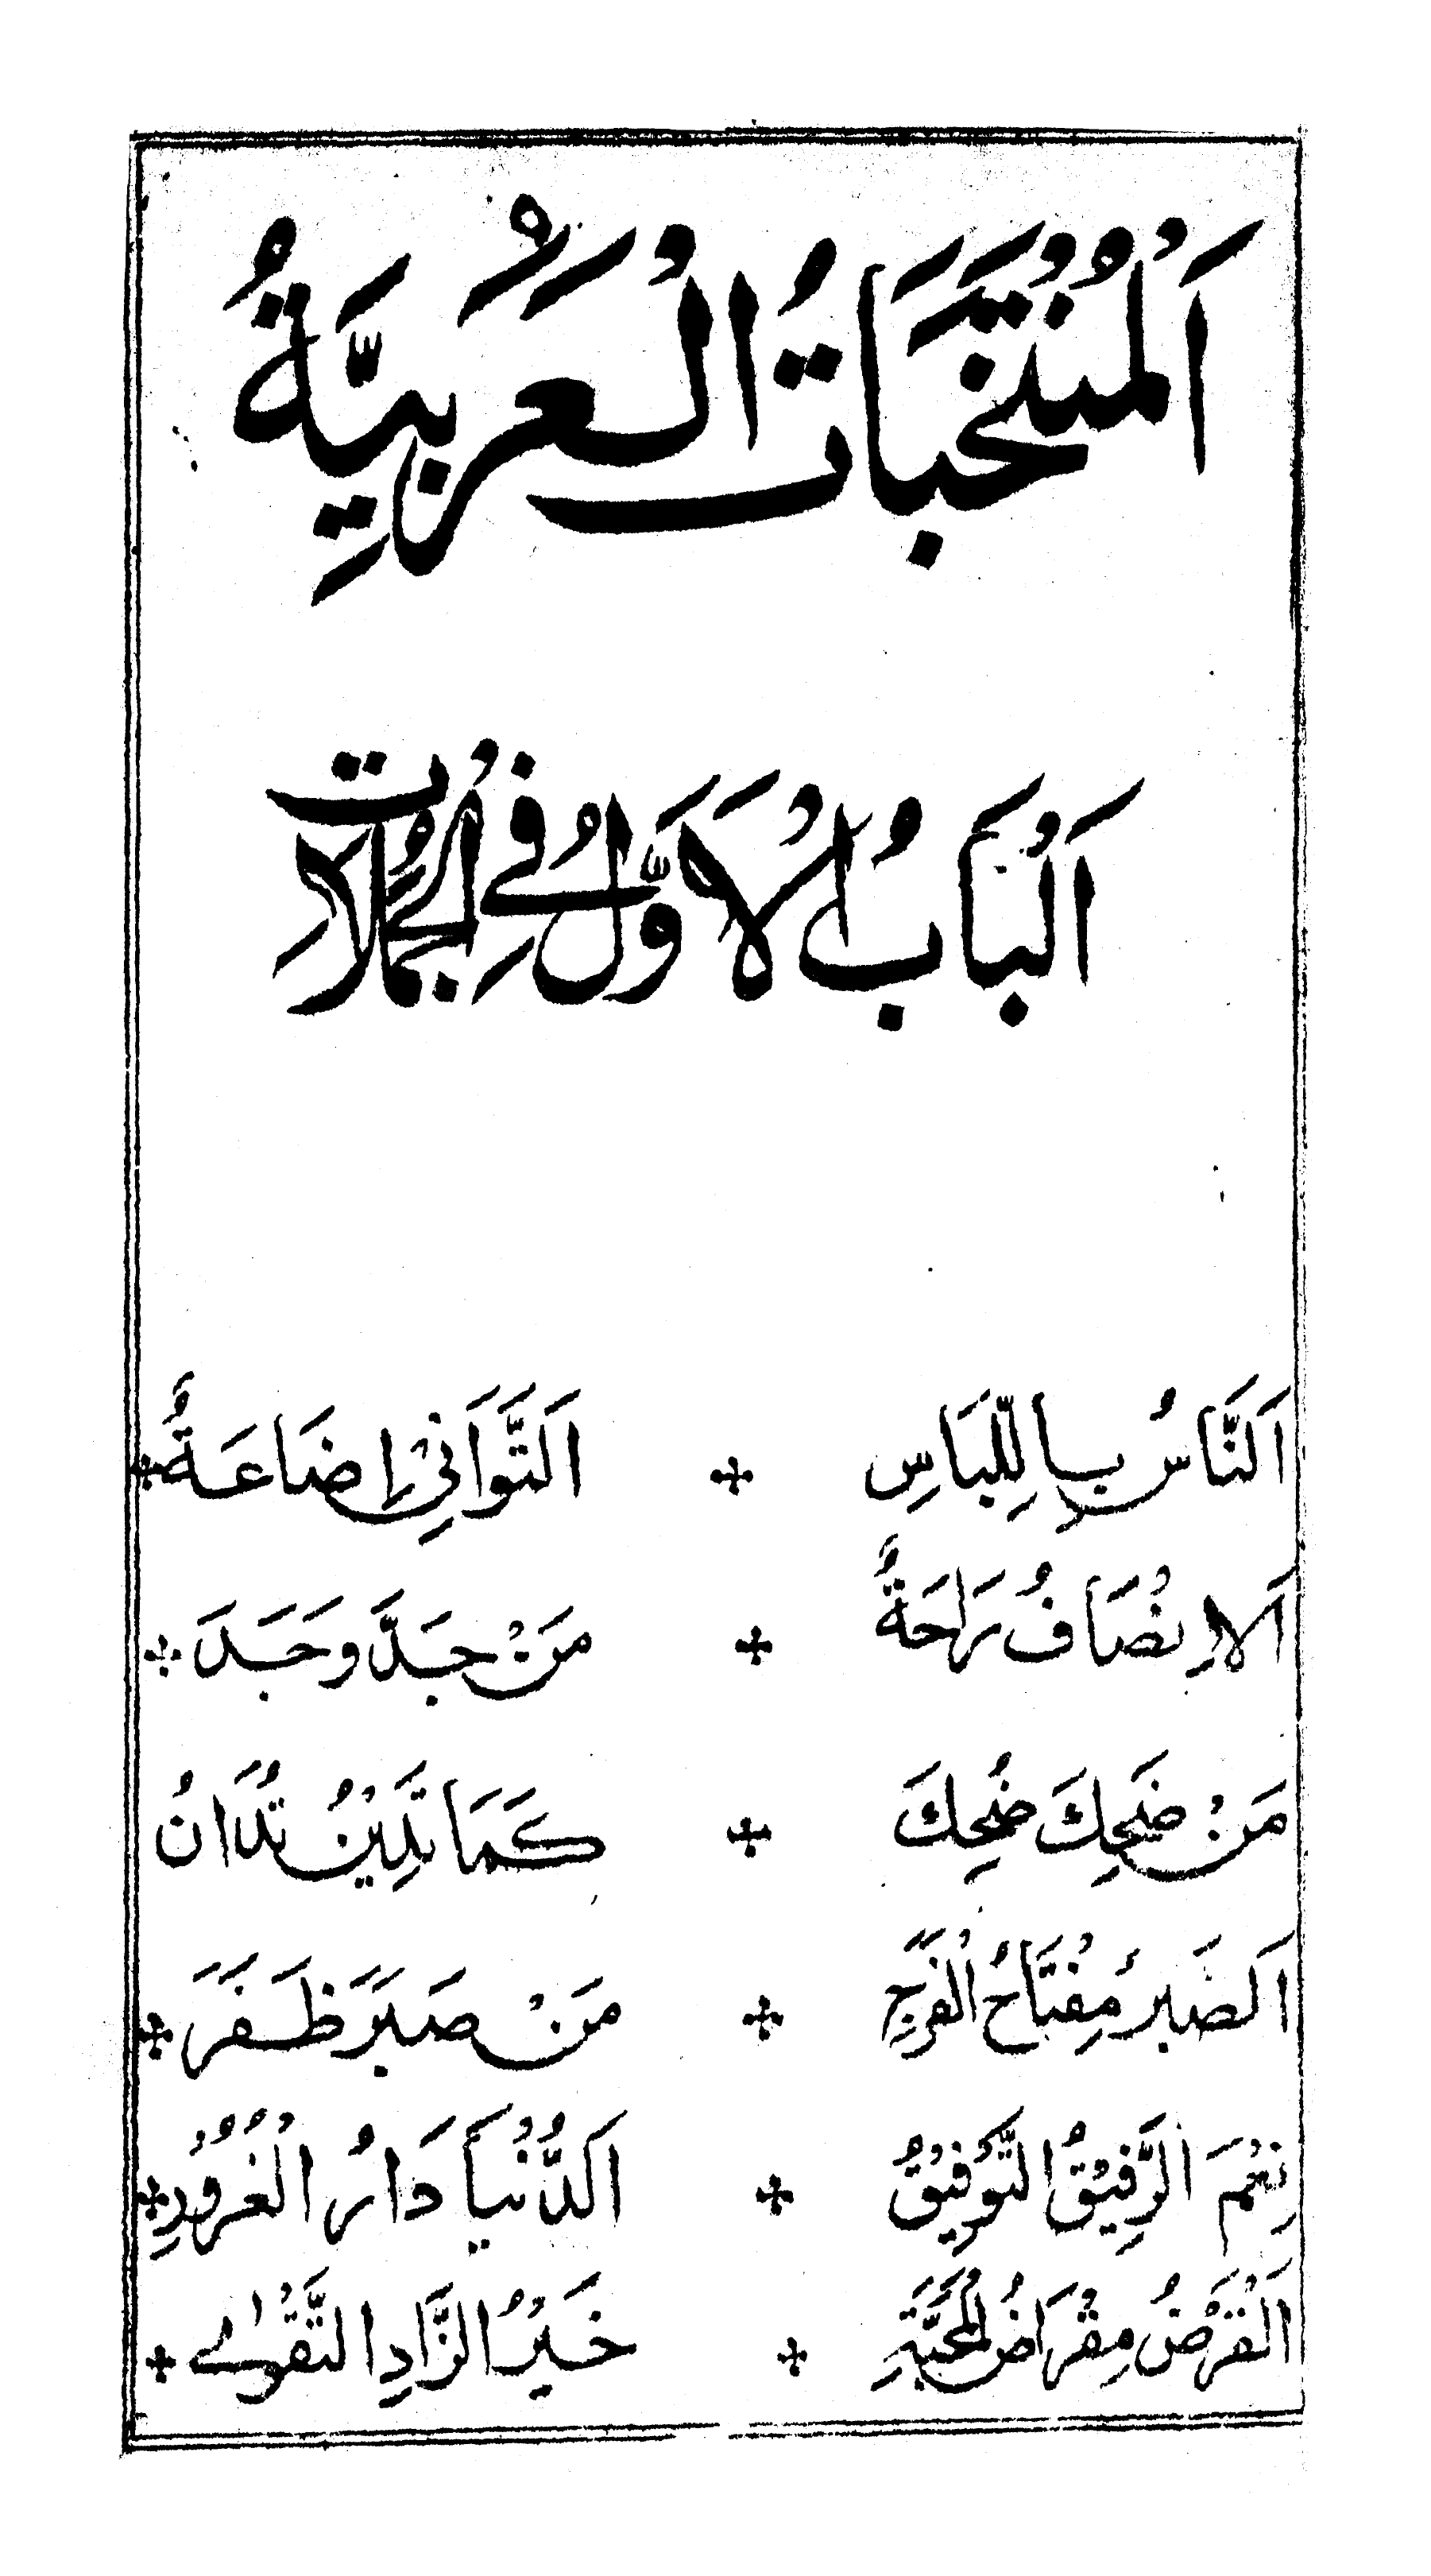 اَلْمُنْتَخَبَاتُ الْعَرَبِيَّةُ
اَلْبَابُ الْاَوَّلُ فِي الْجُمُلَاتِ
اَلنَّاسُ بِالِلّبَاسِ ✤ اَلتَّوَانِیْ اِضَاعَةٌ ✤
اَلْاِنْصَافُ رَاحَةٌ ✤ مَنْ جَدَّ وَجَدَ ✤
مَنْ ضَحِكَ ضُحِكَ ✤ كَمَا تَدِيْنُ تُدَانُ
اَلصَّبْرُ مِفْتَاحُ الْفَرَجِ ✤ مَنْ صَبَرَ ظَفَرَ ✤
نِعْمَ الرَّفِيْقُ التَّوْفِيْقُ ✤ اَلدُّنْيَا دَارُ الْغُرُوْرِ ✤
اَلْقَرْضُ مِقْرَاضُ الْمُحَبَّةِ ✤ خَيْرُ الزَّادِ التَّقْوٰے ✤